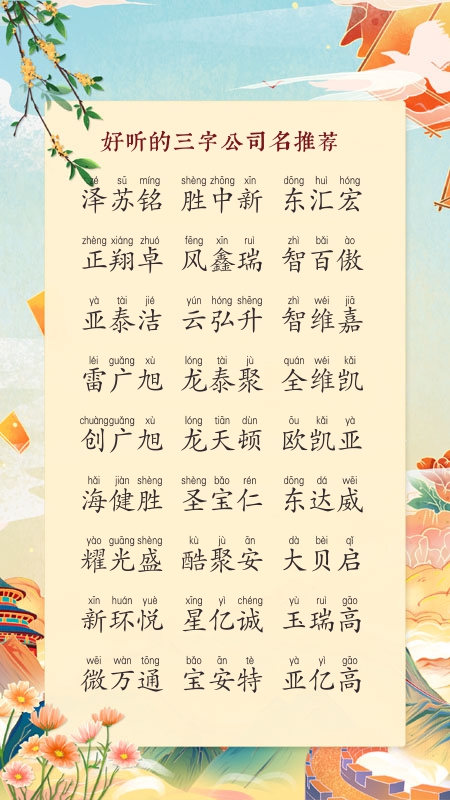 好听的三字公司名推荐
zé sū míng shèng zhōng xīn dōng huì hóng
泽苏铭 胜中新 东汇宏
zhèng xiáng zhuó fēng xīn ruì zhì bǎi ào
正翔卓 风鑫瑞 智百傲
yà tài jié yún hóng shēng zhì wéi jiā
亚泰洁 云弘升 智维嘉
léi guǎng xù lóng tài jù quán wéi kǎi
雷广旭 龙泰聚 全维凯
chuàngguǎng xù lóng tiān dùn ōu kǎi yà
创广旭 龙天顿 欧凯亚
hǎi jiàn shèng shèng bǎo rén dōng dá wēi
海健胜 圣宝仁 东达威
yào guāng shèng kù jù ān dà bèi qǐ
耀光盛 酷聚安 大贝启
xīn huán yuè xīng yì chéng yù ruì gāo
新环悦 星亿诚 玉瑞高
wēi wàn tōng bǎo ān tè yà yì gāo
微万通 宝安特 亚亿高